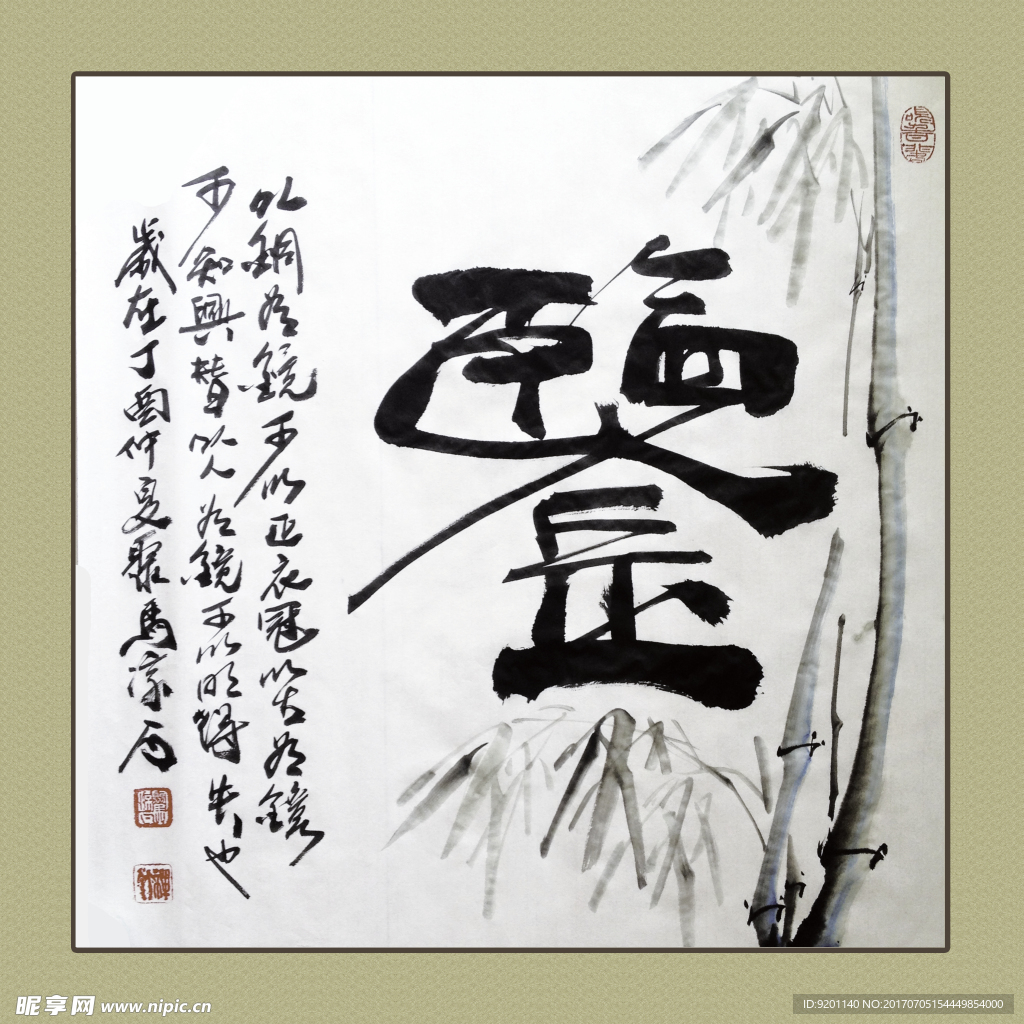 鑒
以銅為鏡可以正衣冠以古為鏡
可知興替以人為鏡可以明得失也
歲在丁酉仲夏
昵享网 www.nipic.cn
ID:9201140 NO:20170705154449854000